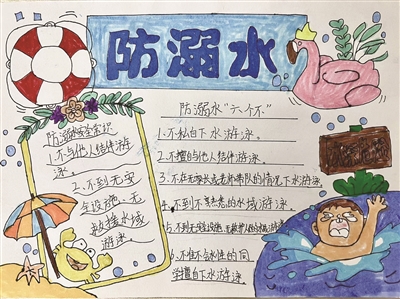 防溺水
防溺水安全常识
1.不与他人结伴游
泳。
2.不到无安
全设施、无
救援水域
游泳
防溺水“六个不”
1.不私自下水游泳。
2.不擅自与他人结伴游泳。
3.不在无家长或老师带队的情况下水游泳
4.不到不熟悉的水域游泳。
5.不到无安全设施、无救护人员的水域游泳
6.不会水性的同
学擅自下水游泳